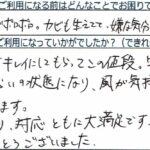 ご利用になる前はどんなことでお困りで
ボロボロ。カビも生えてて、嫌な気分
ご利用になっていかがでしたか？（できれ
キレイにしてもらって、この値段、
らいの状態になり、風が気持
ます。
、対応ともに大満足です。
とうございました。